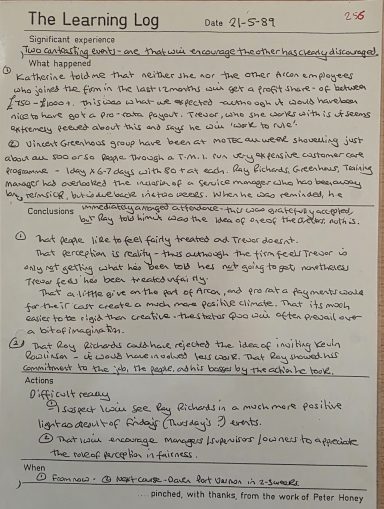 The Learning Log Date 21-5-89 256
Significant experience
Two contrasting events - one that will encourage the other has clearly discouraged.
What happened
① Katherine told me that neither she nor the other Arcon employees
who joined the firm in the last 12 months will get a profit share - of between
£750 - £1000+. This was what we expected although it would have been
nice to have got a pro-rata payout. Trevor, who she works with is it seems
extremely peeved about this and says he will 'work to rule'.
② Vincent Greenhous group have been at MOTEC all week shovelling just
about all 500 or so people through a T.M.I. run very expensive customer care
programme - 1 day x 6-7 days with 80+ at each. Ray Richards, Greenhous, Training
Manager had overlooked the inclusion of a service manager who had been away
long term sick, but is due back in two weeks. When he was reminded, he
immediately arranged attendance - this was gratefully accepted,
Conclusions but Ray told him it was the idea of one of the not his.
① That people like to feel fairly treated and Trevor doesn't.
That perception is reality - thus although the firm feels Trevor is
only not getting what has been told he's not going to get, nonetheless
Trevor feels he has been treated unfairly.
That a little give on the part of Arcon, and pro rata payments would
for their cost create a much more positive climate. That it's much
easier to be rigid than creative - the status quo will often prevail over
a bit of imagination.
② That Ray Richards could have rejected the idea of inviting Kevin
Rowlinson - it would have involved less work. That Ray showed his
commitment to the job, the people, and his bosses by the action he took.
Actions
Difficult really
① I suspect I will see Ray Richards in a much more positive
light as a result of Friday's (Thursday's?) events.
② That I will encourage managers/supervisors/owners to appreciate
the role of perception in fairness.
When
① From now - ② Next course - Port Vernon in 2-3 weeks.
....pinched, with thanks, from the work of Peter Honey